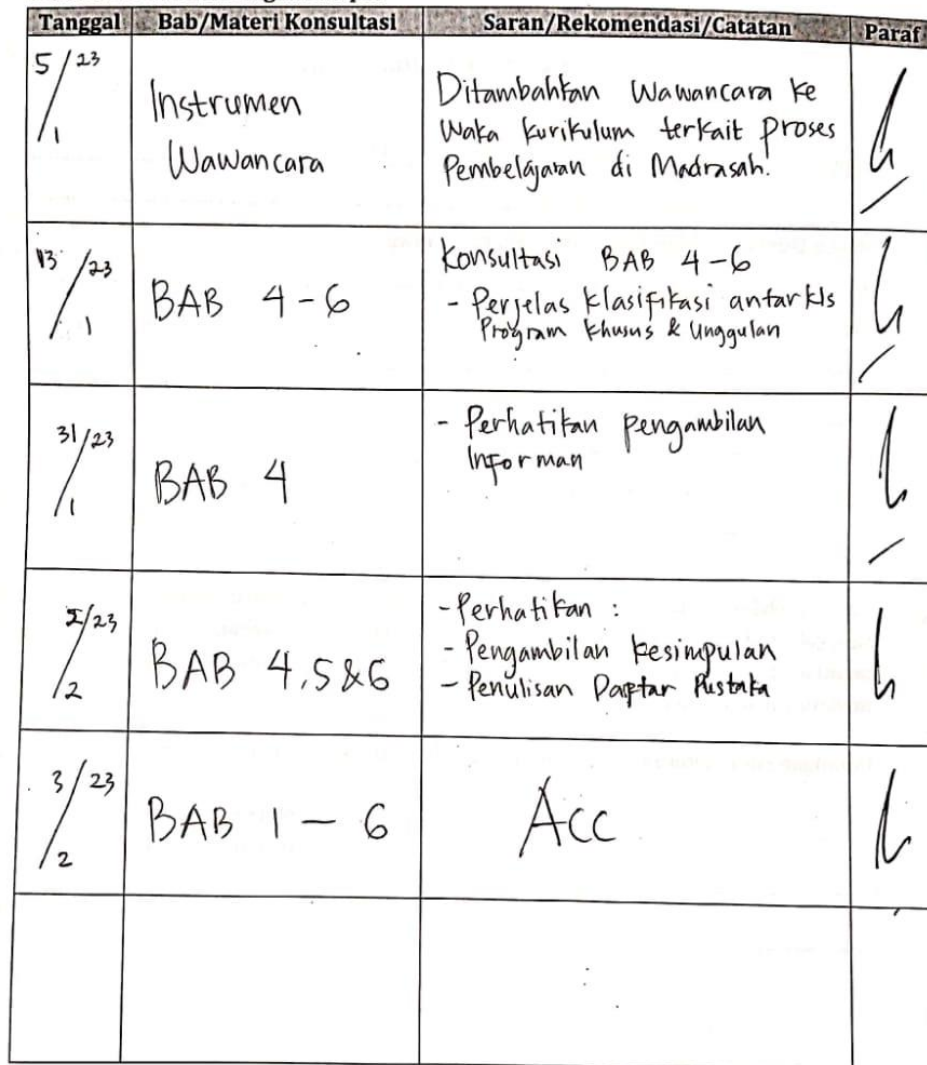 Tanggal Bab/Materi Konsultasi Saran/Rekomendasi/Catatan Paraf
5/23
1
Instrumen
Wawancara
Ditambahkan Wawancara ke
Waka kurikulum terkait proses
Pembelajaran di Madrasah.
13/23
1
BAB 4-6
Konsultasi BAB 4-6
- Perjelas klasifikasi antar kls
Program khusus & Unggulan
31/23
1
BAB 4
- Perhatikan pengambilan
Informan
/23
2
BAB 4,5&6
- Perhatikan :
- Pengambilan kesimpulan
- Penulisan Daftar Pustaka
3/23
2
BAB 1 - 6
Acc